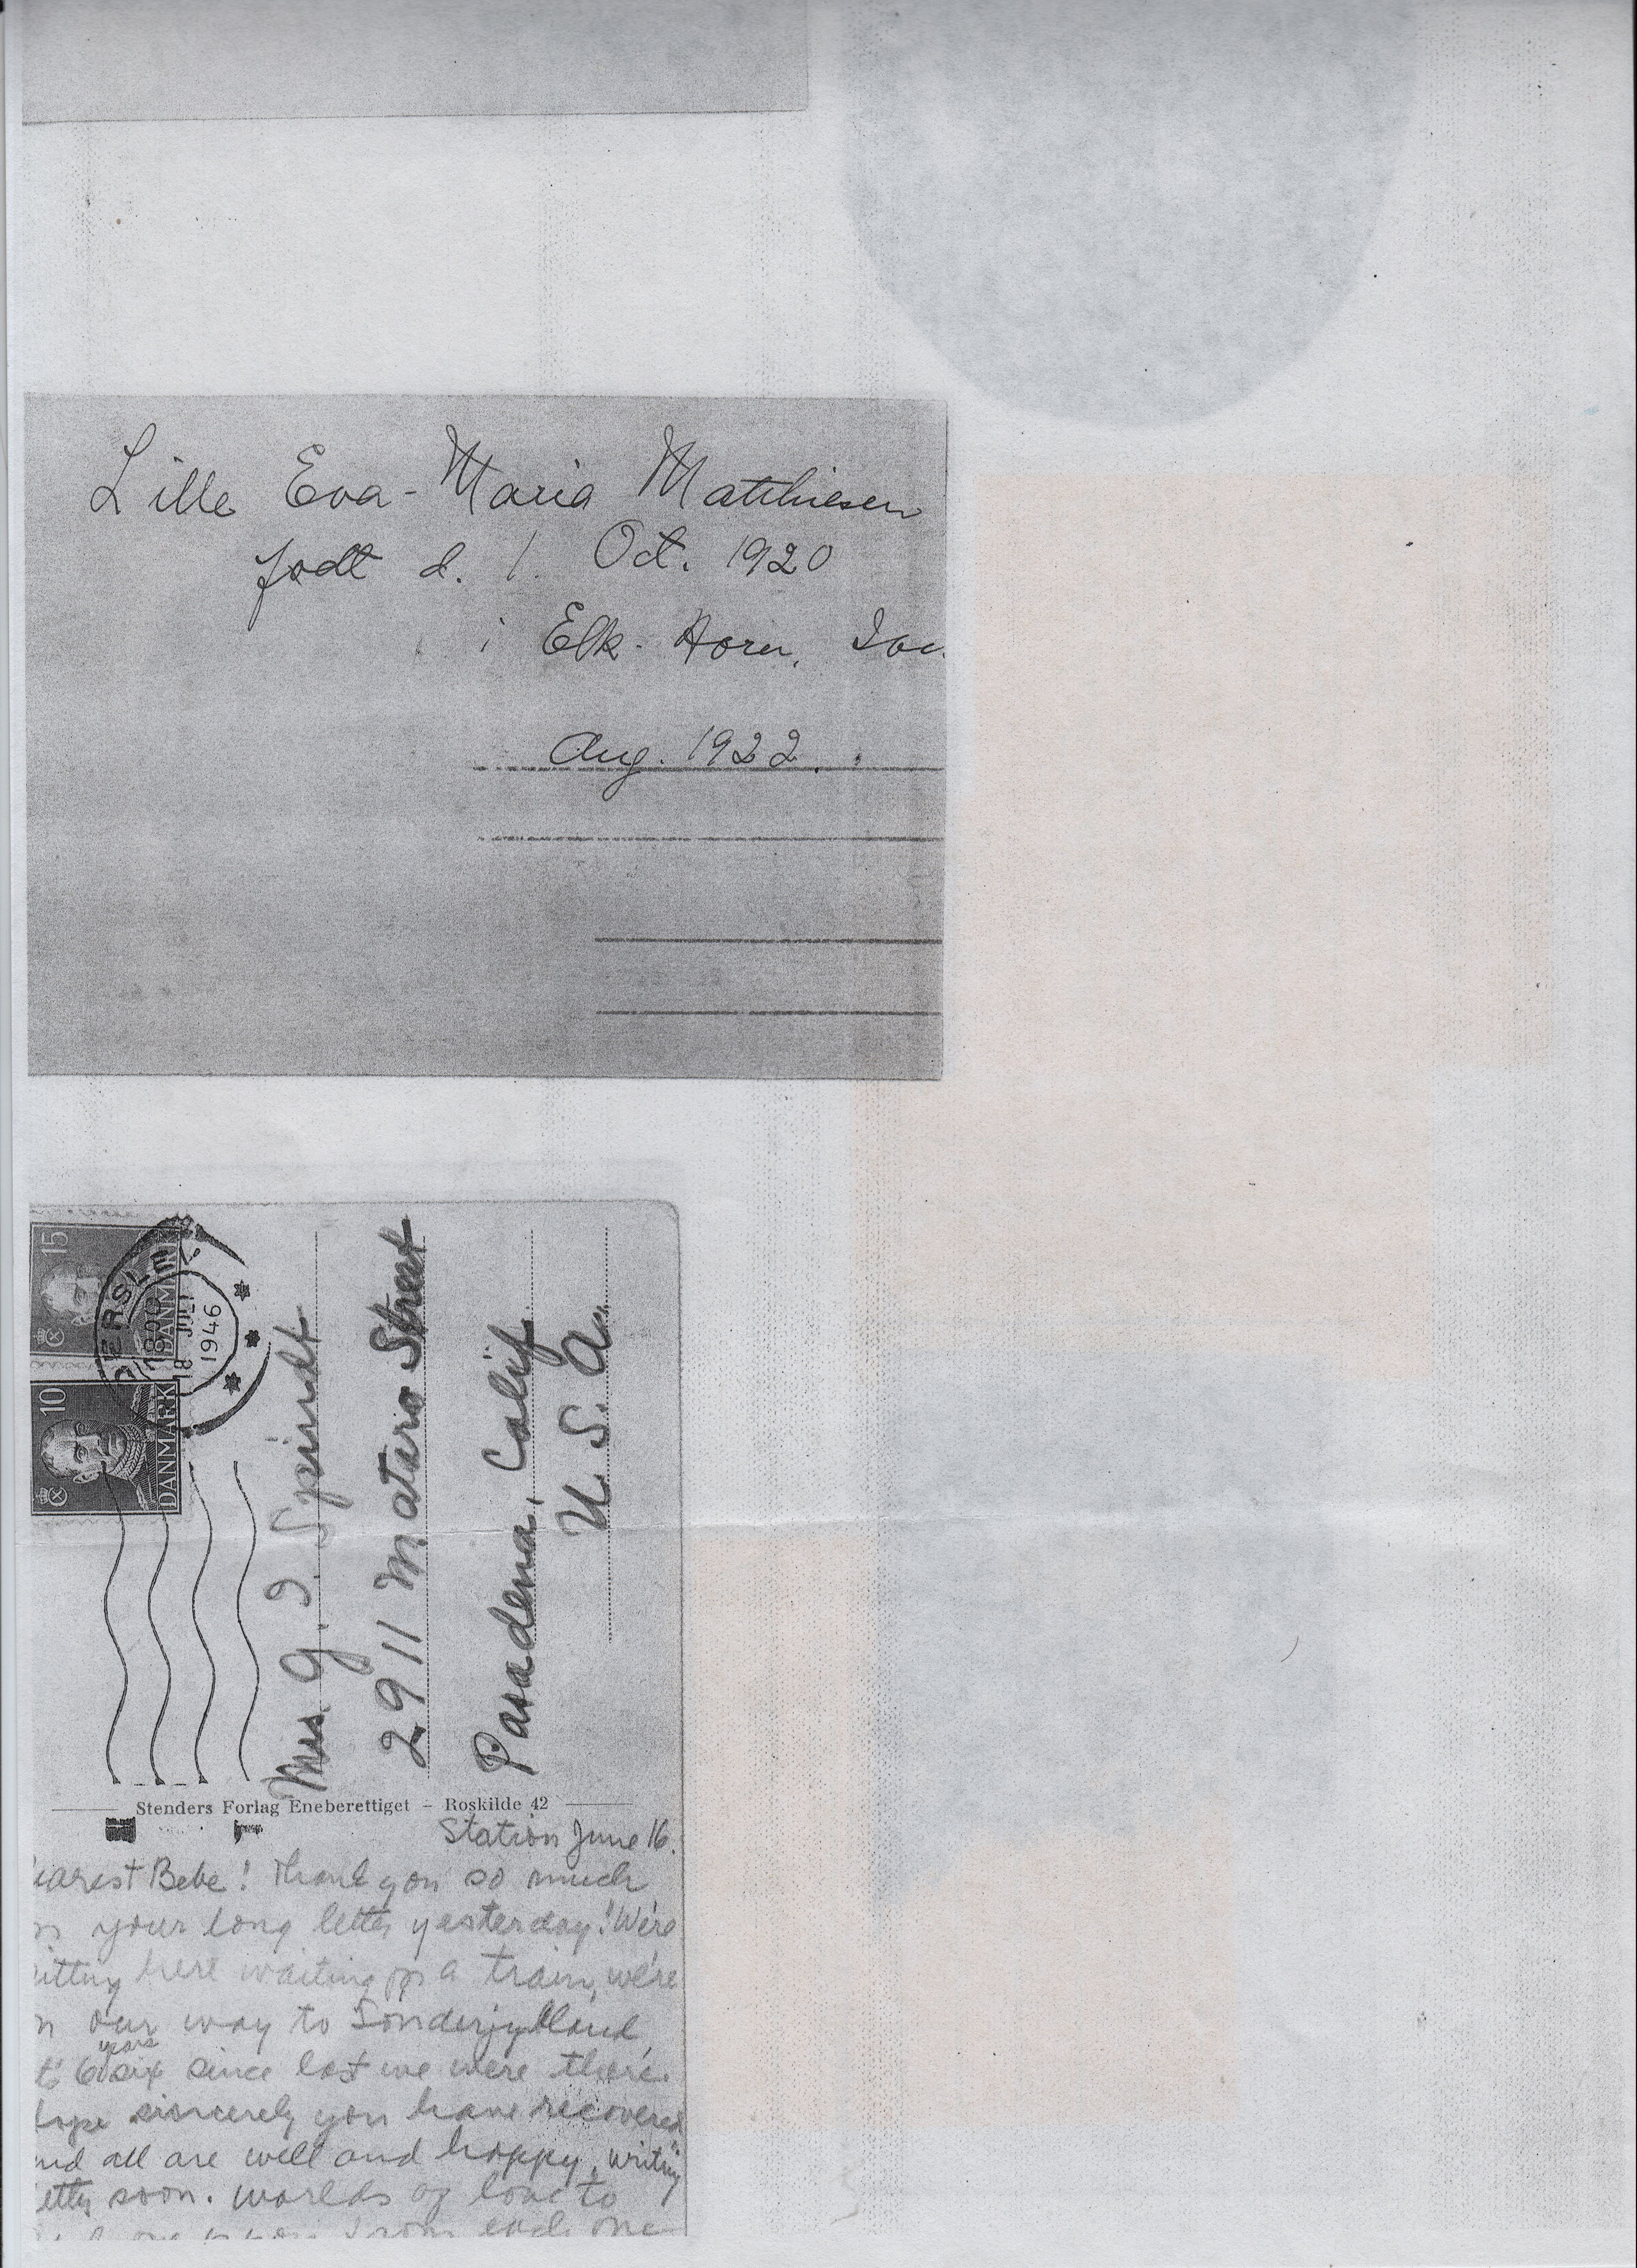 Lille Eva-Maria Matthiesen
født d. 1. Oct. 1920
i Elk-Horn, Iow
Aug. 1922.
15
DANMARK
10
DANMARK
DERSLEV
18 JULI
1946
Mrs. G. I. Spindt
2911 Mataro Street
Pasadena, Calif.
U. S. A.
Stenders Forlag Eneberettiget – Roskilde 42
Station June 16.
earest Bebe! Thank you so much
your long letter yesterday! We're
itting here waiting for a train, we're
n our way to Sonderjylland,
t's 6 six years since last we were there.
hope sincerely you have recovered
nd all are well and happy, writing
etter soon. worlds of love to
from each one